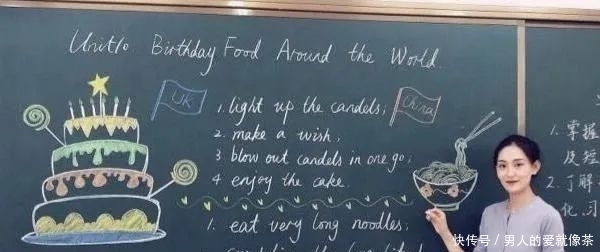 Unit10 Birthday Food Around the World.
UK
1. light up the candels;
2. make a wish;
3 blow out candels in one go;
4 enjoy the cake.
China
1. eat very long noodles;
1. 掌握
及短
2. 了解
化.习
快传号 / 男人的爱就像茶